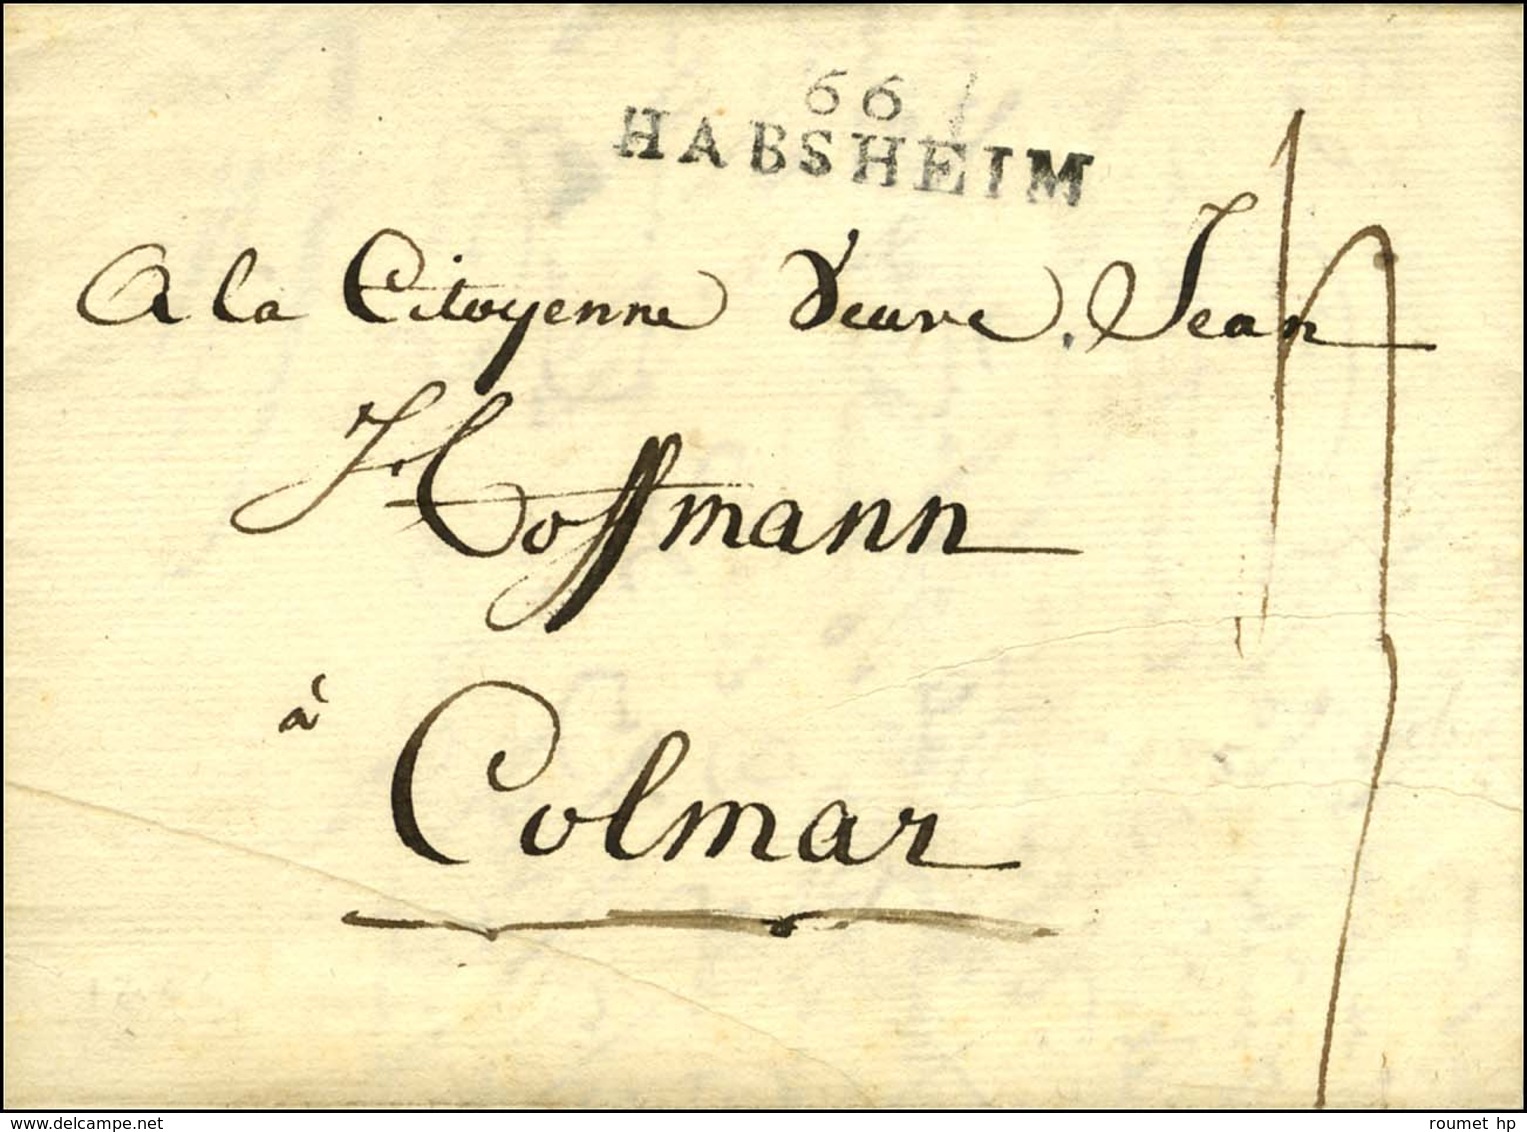 66
HABSHEIM
A la Citoyenne Veuve Jean
Hoffmann
à
Colmar
delcampe.net
roumet hp